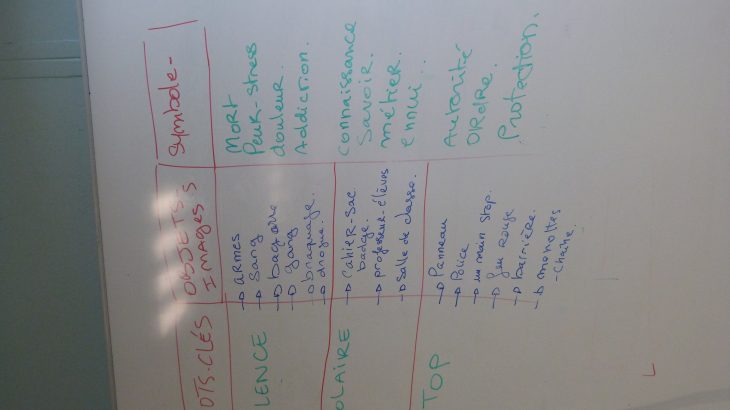 OTS-CLÉS
OBJETS
IMAGES S
Symbole-
LENCE
→ armes
→ Sang
→ bagarre
→ gang
→ braquage
→ drogue.
MORT
Peur-stress
douleur.
Addiction.
OLAIRE
→ Cahier-sac
badge.
→ professeur-élèves
→ salle de classe.
Connaissance
Savoir.
métier.
ennui..
TOP
→ Panneau
→ Police
→ une main stop.
→ feu rouge
→ barrière.
→ menottes
- chaîne.
Autorité
ORdRe.
Protection.